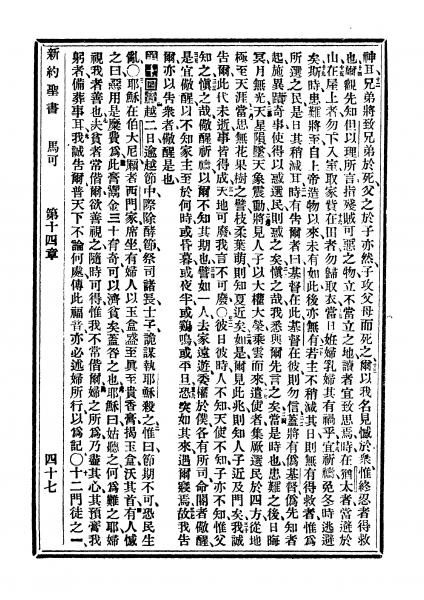 神耳、兄弟將致兄弟於死、父之於子亦然、子攻父母而死之、爾以我名見憾於衆、惟終忍者得救
也、爾觀先知但以理所言、指殘賊可惡之物、立不當立之地、讀者宜致思焉、時在猶太者當避於
山、在屋上者勿下入室取家貲、在田者勿歸取衣、當日妊婦乳婦其有禍乎、宜祈禱、免冬時逃避
矣、斯時患難將至、自上帝造物以來、未有如此、後亦無有、若主不稍減其日、則無有得救者、惟爲
所選之民、是日其稍減耳、時有告爾者曰、基督在此、基督在彼、則勿信、蓋將有僞基督僞先知者
起、施異蹟奇事、使得以惑選民、則惑之矣、愼之哉、我悉與爾先言之矣、當是時也、患難之後、日晦
冥、月無光、天星隕墜、天象震動、將見人子以大權大榮、乘雲而來、遣使者集厥選民於四方、從地
極至天涯、當思無花果樹之譬、枝柔葉萌、則知夏近矣、如是爾見此兆、則知人子近及門矣、我誠
告爾、此代未逝、事皆得成、天地可廢、我言不可廢、○彼日彼時、人不知、天使不知、子亦不知、惟父
知之、愼之哉、儆醒祈禱、以爾不知其期也、譬如一人、去家遠遊、委權於僕、各有所司、命閽者儆醒
是宜儆醒、以不知家主至於何時、或昏暮、或夜半、或鷄鳴、或平旦、恐突如其來、遇爾寢焉、故我告
爾、亦以告衆者、儆醒是也
第十四章 越二日、逾越節中際、除酵節、祭司諸長士子、詭謀執耶穌殺之、惟曰、節期不可、恐民生
亂、○耶穌在伯大尼、癩者西門家席坐、有婦人以玉盒、盛至眞至貴香膏、揭玉盒、沃其首、有人憾
之曰、惡用是糜費爲、此膏鬻金三十有奇、可以濟貧矣、蓋咎之也、耶穌曰、姑聽之、何爲難之耶、婦
視我者善也、夫貧者常偕爾、欲善視之、隨時可得、惟我不常偕爾、婦之所爲、乃盡其心、其預膏我
躬者、備葬事耳、我誠告爾、普天下不論何處傳此福音、亦必述婦所行以爲記、○十二門徒之一
新約聖書 馬可 第十四章 四十七